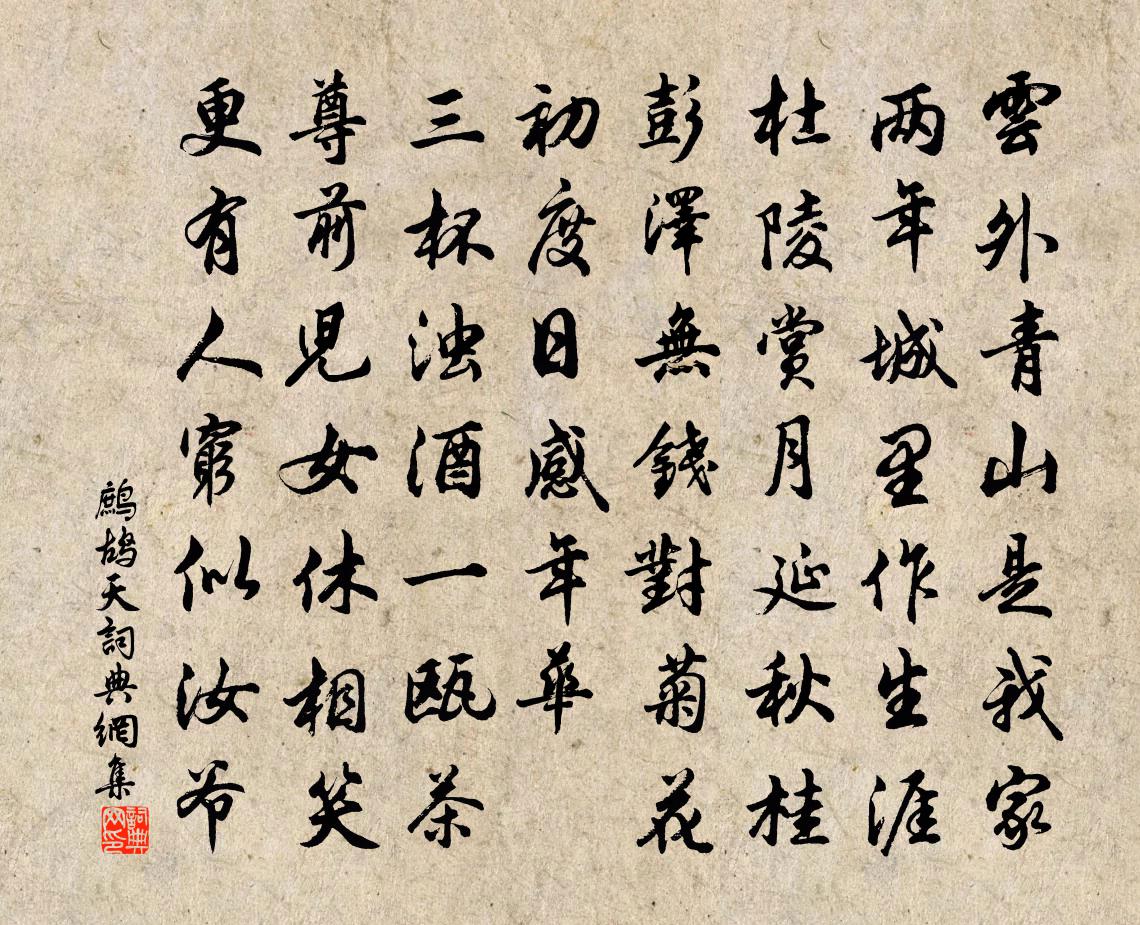 雲外青山是我家
两年城里作生涯
杜陵賞月延秋桂
彭澤無錢對菊花
初度日感年華
三杯浊酒一甌茶
尊前児女休相笑
更有人窮似汝爷
鷓鴣天詞典網集
詞典网印